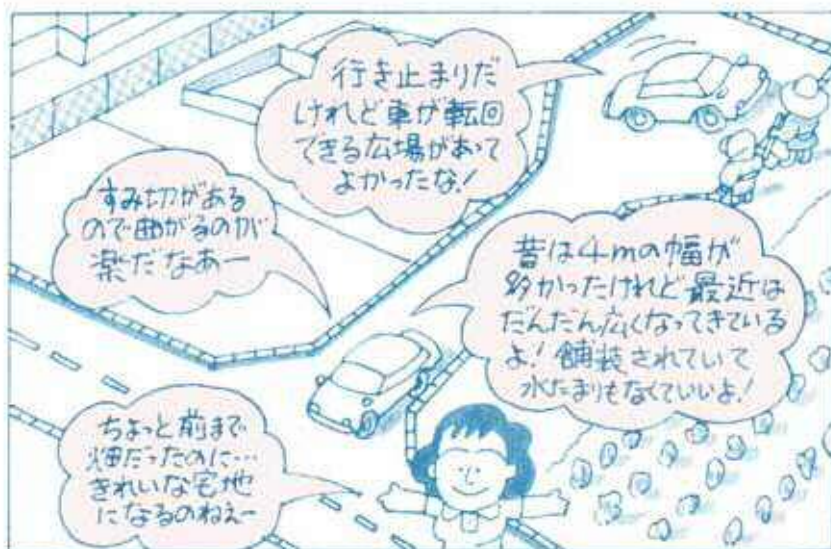 行き止まりだ
けれど車が転回
できる広場があって
よかったな!
すみ切があるので
曲がるのが
楽だなあー
昔は4mの幅が
多かったけれど最近は
だんだん広くなってきている
よ!舗装されていて
水たまりもなくていいよ!
ちょっと前まで
畑だったのに…
きれいな宅地
になるのねぇー